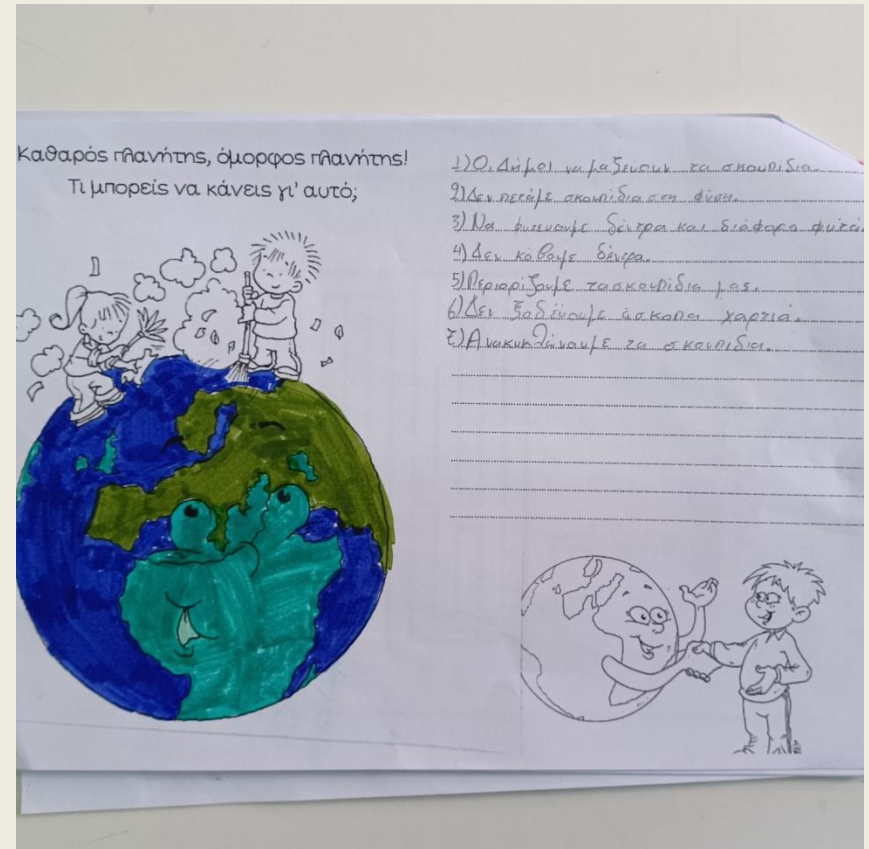 Καθαρός πλανήτης, όμορφος πλανήτης!
Τι μπορείς να κάνεις γι' αυτό;
1) Οι Δήμοι να μαζεύουν τα σκουπίδια.
2) Δεν πετάμε σκουπίδια στη φύση.
3) Να φυτεύουμε δέντρα και διάφορα φυτά.
4) Δεν κόβουμε δέντρα.
5) Περιορίζουμε τα σκουπίδια μας.
6) Δεν ξοδεύουμε άσκοπα χαρτιά.
7) Ανακυκλώνουμε τα σκουπίδια.